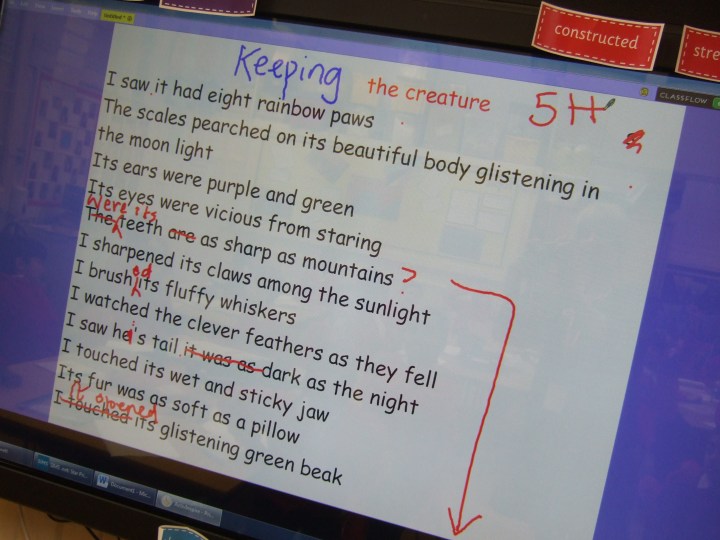 constructed
stre
Untitled*
CLASSFLOW
Keeping the creature 5H
I saw it had eight rainbow paws
The scales pearched on its beautiful body glistening in
the moon light
Its ears were purple and green
Its eyes were vicious from staring
Were its
The teeth are as sharp as mountains ?
I sharpened its claws among the sunlight
I brush ed its fluffy whiskers
I watched the clever feathers as they fell
I saw he's tail it was as dark as the night
I touched its wet and sticky jaw
Its fur was as soft as a pillow
It opened
I touched its glistening green beak